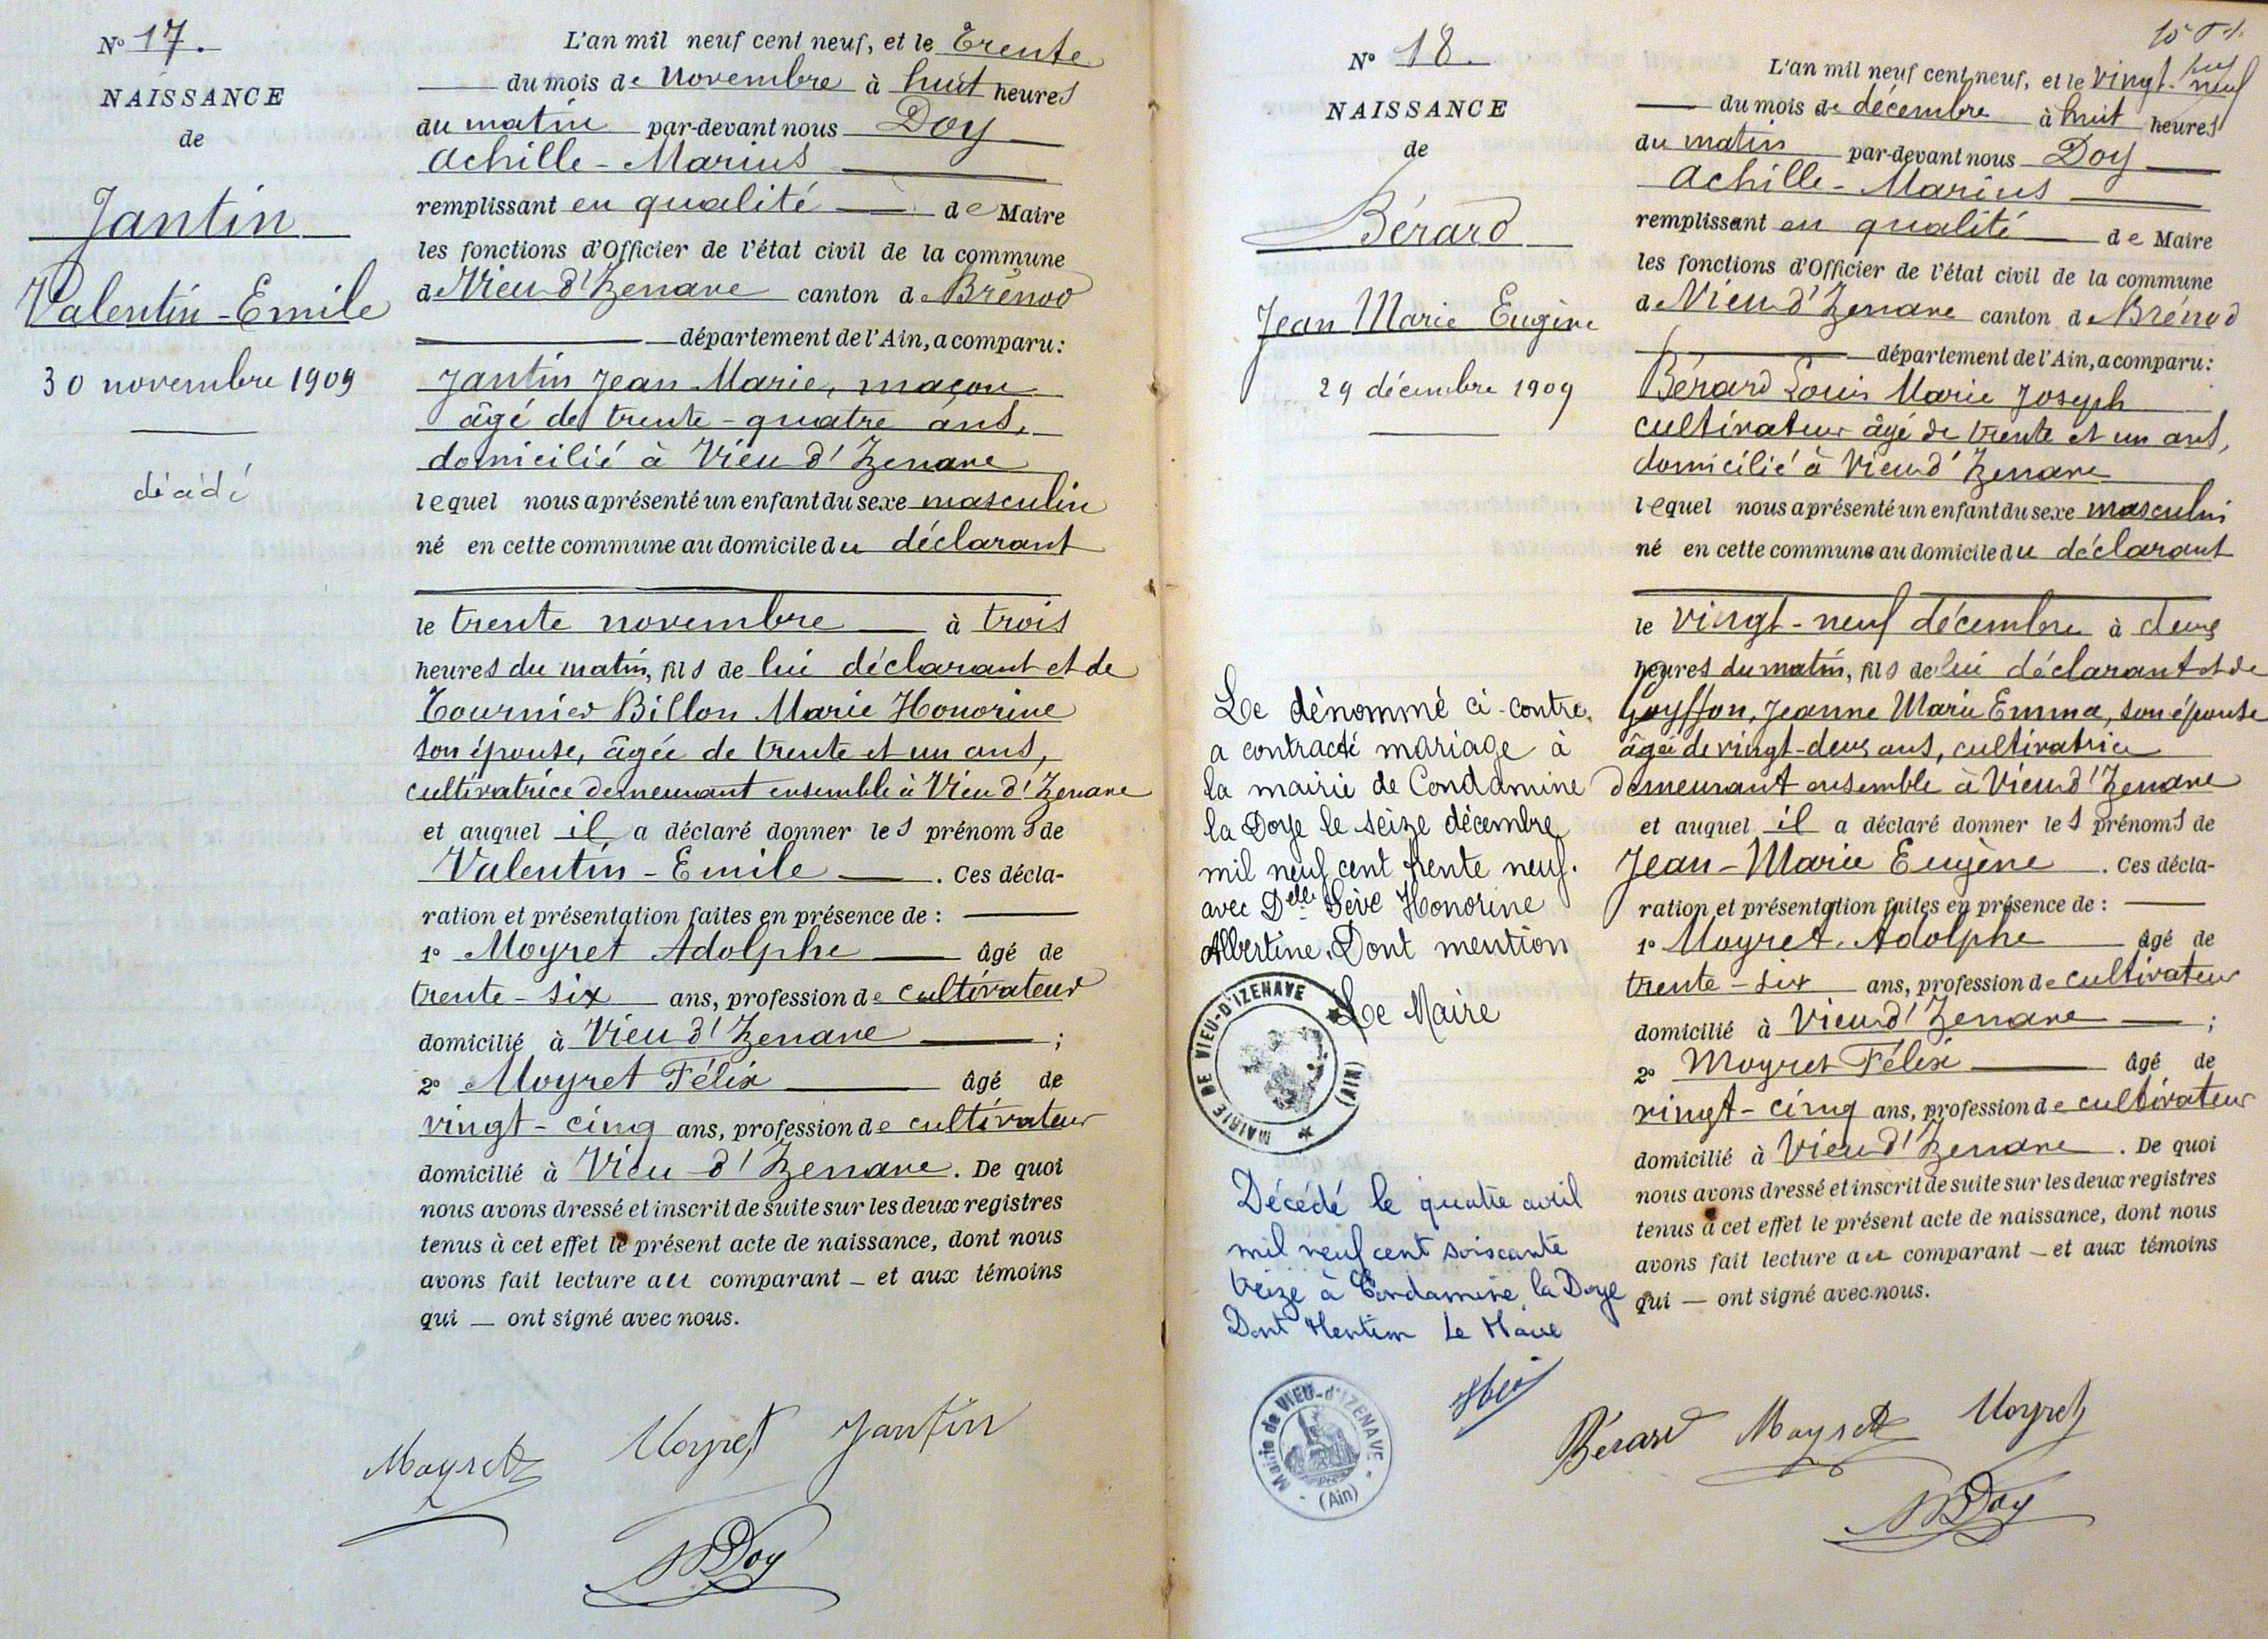 N° 17.
NAISSANCE
de
Jantin
Valentin-Emile
30 novembre 1909
décédé
L'an mil neuf cent neuf, et le trente
du mois de Novembre à huit heures
du matin par-devant nous Doy
Achille-Marius
remplissant en qualité de Maire
les fonctions d'Officier de l'état civil de la commune
de Vieu d'Izenave canton de Brénod
département de l'Ain, a comparu:
Jantin Jean Marie, maçon
âgé de trente-quatre ans,
domicilié à Vieu d'Izenave
lequel nous a présenté un enfant du sexe masculin
né en cette commune au domicile du déclarant
le trente novembre à trois
heures du matin, fils de lui déclarant et de
Tournier Billon Marie Honorine
son épouse, âgée de trente et un ans,
cultivatrice demeurant ensemble à Vieu d'Izenave
et auquel il a déclaré donner les prénoms de
Valentin-Emile. Ces décla-
ration et présentation faites en présence de :
1° Moyret Adolphe âgé de
trente-six ans, profession de cultivateur
domicilié à Vieu d'Izenave ;
2° Moyret Félix âgé de
vingt-cinq ans, profession de cultivateur
domicilié à Vieu d'Izenave. De quoi
nous avons dressé et inscrit de suite sur les deux registres
tenus à cet effet le présent acte de naissance, dont nous
avons fait lecture au comparant — et aux témoins
qui — ont signé avec nous.
Moyret Moyret Jantin
Doy
N° 18.
NAISSANCE
de
Bérard
Jean Marie Eugène
29 décembre 1909
Le dénommé ci-contre,
a contracté mariage à
la mairie de Condamine
la Doye le seize décembre
mil neuf cent trente neuf.
avec Delle Sève Honorine
Albertine. Dont mention
Le Maire
MAIRIE DE VIEU-D'IZENAVE (AIN)
Décédé le quatre avril
mil neuf cent soixante
treize à Condamine la Doye
Dont Mention Le Maire
Mairie de VIEU-d'IZENAVE
(Ain)
L'an mil neuf cent neuf, et le vingt-neuf
du mois de décembre à huit heures
du matin par-devant nous Doy
Achille-Marius
remplissant en qualité de Maire
les fonctions d'Officier de l'état civil de la commune
de Vieu d'Izenave canton de Brénod
département de l'Ain, a comparu:
Bérard Louis Marie Joseph
cultivateur âgé de trente et un ans,
domicilié à Vieu d'Izenave
lequel nous a présenté un enfant du sexe masculin
né en cette commune au domicile du déclarant
le vingt-neuf décembre à deux
heures du matin, fils de lui déclarant et de
Goyffon, Jeanne Marie Emma, son épouse
âgée de vingt-deux ans, cultivatrice
demeurant ensemble à Vieu d'Izenave
et auquel il a déclaré donner les prénoms de
Jean-Marie Eugène. Ces décla-
ration et présentation faites en présence de :
1° Moyret Adolphe âgé de
trente-six ans, profession de cultivateur
domicilié à Vieu d'Izenave ;
2° Moyret Félix âgé de
vingt-cinq ans, profession de cultivateur
domicilié à Vieu d'Izenave. De quoi
nous avons dressé et inscrit de suite sur les deux registres
tenus à cet effet le présent acte de naissance, dont nous
avons fait lecture au comparant — et aux témoins
qui — ont signé avec nous.
Bérard Moyret Moyret
Doy